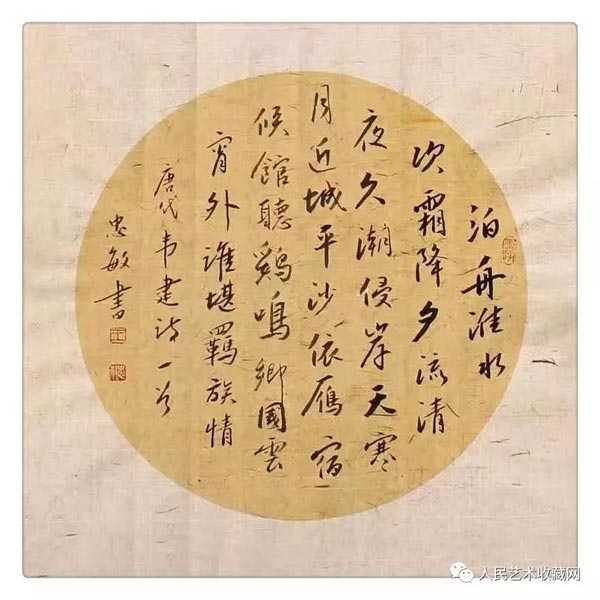 泊舟淮水
次霜降夕流清
夜久潮侵岸天寒
月近城平沙依雁宿
候館聽鷄鳴鄉國雲
霄外誰堪羈族情
唐代韦建诗一首
忠敏書
人民艺术收藏网